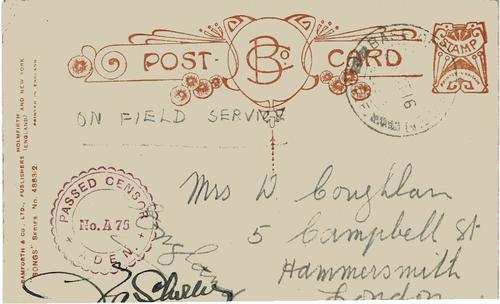 POST CARD
B & Co
STAMP
ON FIELD SERVICE
BASE
16
PASSED CENSOR
No. A 75
ADEN.
Mrs W. Coughlan
5 Campbell St
Hammersmith
London
BAMFORTH & CO., LTD., PUBLISHERS HOLMFIRTH AND NEW YORK
(ENGLAND)
PRINTED IN ENGLAND
"SONGS" SERIES No. 4863/2.